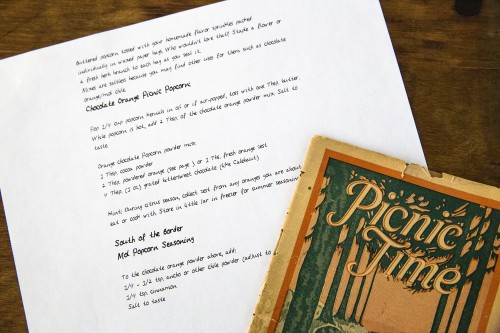 Buttered popcorn tossed with your homemade flavor sprinkles packed
individually in waxed paper bags. Who wouldn't love that? Staple a flower or
a fresh herb branch to each bag as you seal it.
Mixes are saltless because you may find other uses for them such as chocolate
orange/mol chile.
Chocolate Orange Picnic Popcorn:
Pop 1/4 cup popcorn kernels in oil or if air-popped, toss with one Tbsp. butter.
While popcorn is hot, add 2 Tbsp. of the chocolate orange powder mix. Salt to
taste.
Orange chocolate Popcorn powder mix:
1 Tbsp. cocoa powder
2 Tbsp. powdered orange (see page ) or 1 Tbs. fresh orange zest
Tbsp. (1 oz.) grated bittersweet chocolate (the Calebaut)
Hint: During citrus season, collect zest from any oranges you are about
eat or cook with. Store in little jar in freezer for summer seasoning
South of the Border
Mol Popcorn Seasoning
To the chocolate orange powder above, add:
1/4 - 1/2 tsp. ancho or other chile powder (adjust to
1/4 tsp. cinnamon
Salt to taste
Picnic
Time